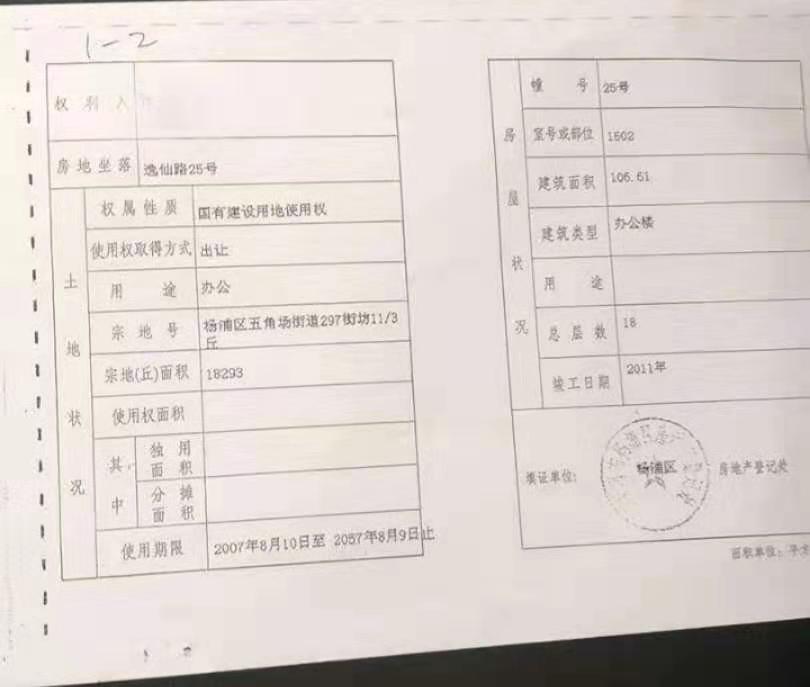 1-2
权利人
房地坐落 逸仙路25号
土地状况
权属性质 国有建设用地使用权
使用权取得方式 出让
用途 办公
宗地号 杨浦区五角场街道297街坊11/3
丘
宗地(丘)面积 18293
使用权面积
其中
独用
面积
分摊
面积
使用期限 2007年8月10日至 2057年8月9日止
房屋状况
幢号 25号
室号或部位 1502
建筑面积 106.51
建筑类型 办公楼
用途
总层数 18
竣工日期 2011年
填证单位: 杨浦区 房地产登记处
面积单位: 平方